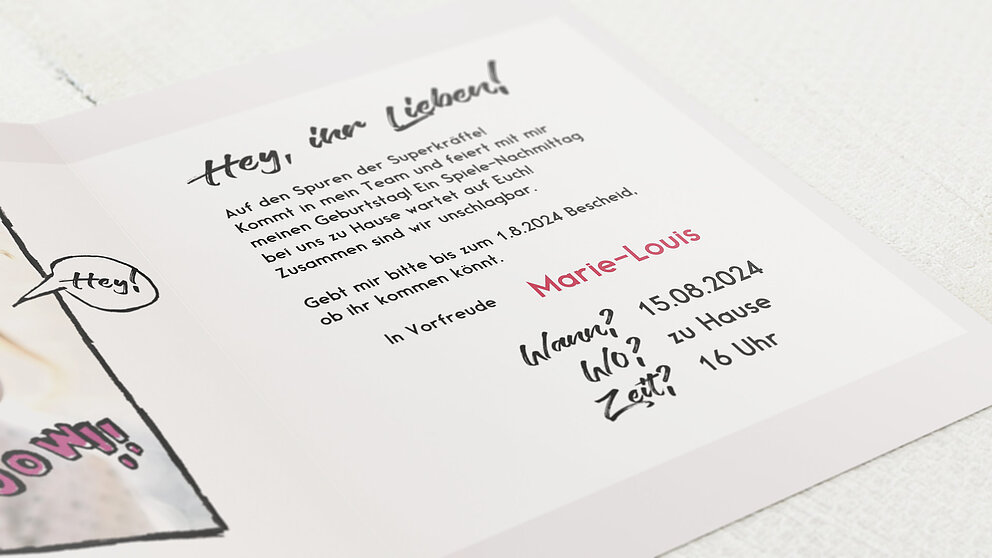 Hey, ihr Lieben!
Auf den Spuren der Superkräfte!
Kommt in mein Team und feiert mit mir
meinen Geburtstag! Ein Spiele-Nachmittag
bei uns zu Hause wartet auf Euch!
Zusammen sind wir unschlagbar.
Gebt mir bitte bis zum 1.8.2024 Bescheid,
ob ihr kommen könnt.
In Vorfreude
Marie-Louis
Wann? 15.08.2024
Wo? zu Hause
Zeit? 16 Uhr
Hey!